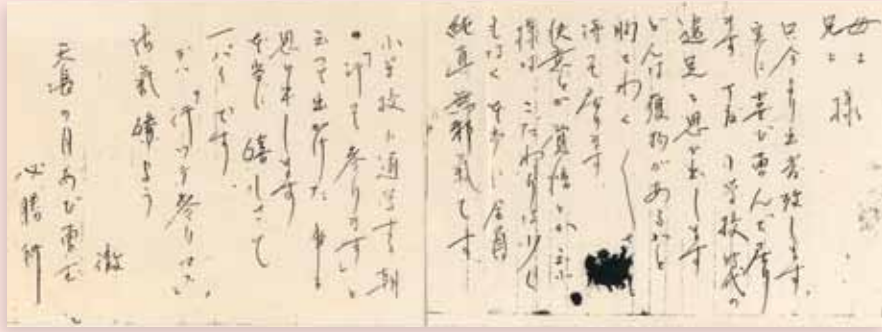 母上様
兄上
只今より出発致します。
実に喜び勇んで居り
ます 丁度小学校時代の
遠足を思ひ出します
どんな獲物があるかと
胸をわく〱させ
待て居ります
決意とか覚悟とか云ふ
様な こだわりは少し
もなく 本当に全員
純真無邪気です
小学校に通学する朝
「行って参ります」と
云って出かけた事を
思ひ出します
本当に嬉しさで
一パイです
では「行って参ります」
御気嫌よう
徹
天長の月 喜び勇む
必勝